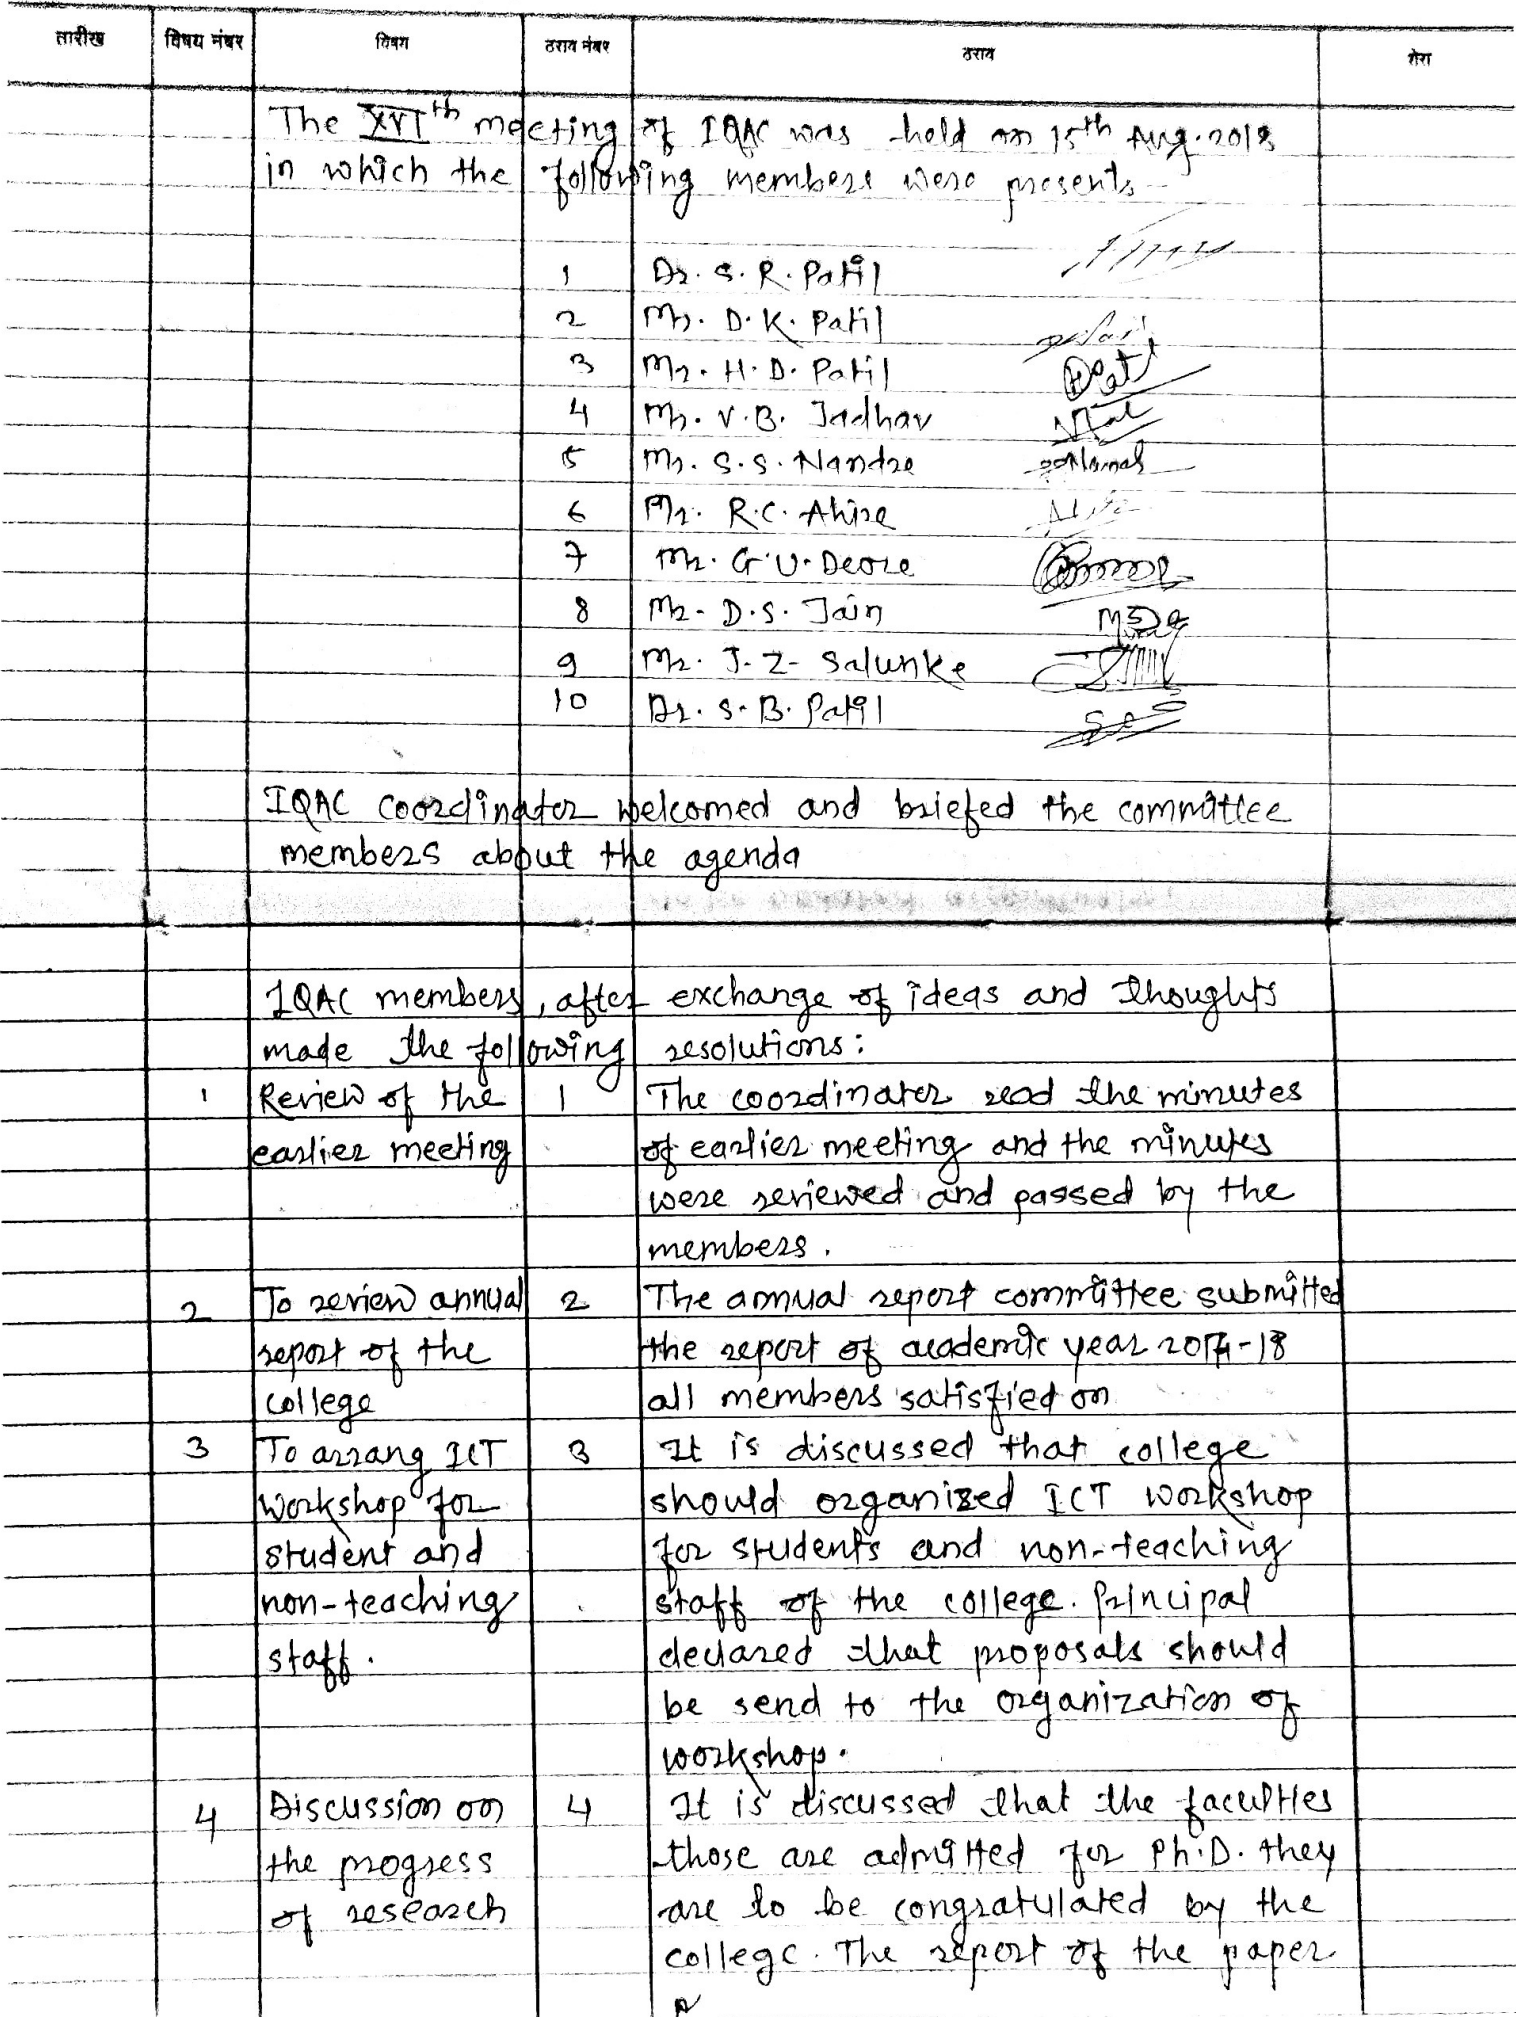 तारीख विषय नंबर विषय ठराव नंबर ठराव शेरा
The XVIth meeting of IQAC was held on 15th Aug. 2018
in which the following members were presents -
1 Dr. S. R. Patil
2 Mr. D. K. Patil
3 Mr. H. D. Patil
4 Mr. V. B. Jadhav
5 Mr. S. S. Nandre
6 Mr. R. C. Ahire
7 Mr. G. U. Deore
8 Mr. D. S. Jain
9 Mr. J. Z. Salunke
10 Dr. S. B. Patil
IQAC coordinator welcomed and briefed the committee
members about the agenda
IQAC members, after exchange of ideas and thoughts
made the following resolutions:
1 Review of the 1 The coordinator read the minutes
earlier meeting of earlier meeting and the minutes
were reviewed and passed by the
members.
2 To review annual 2 The annual report committee submitted
report of the the report of academic year 2017-18
college all members satisfied on
3 To arrang ICT 3 It is discussed that college
workshop for should organized ICT workshop
student and for students and non-teaching
non-teaching staff of the college. Principal
staff. declared that proposals should
be send to the organization of
workshop.
4 Discussion on 4 It is discussed that the faculties
the progress those are admitted for Ph.D. they
of research are to be congratulated by the
college. The report of the paper